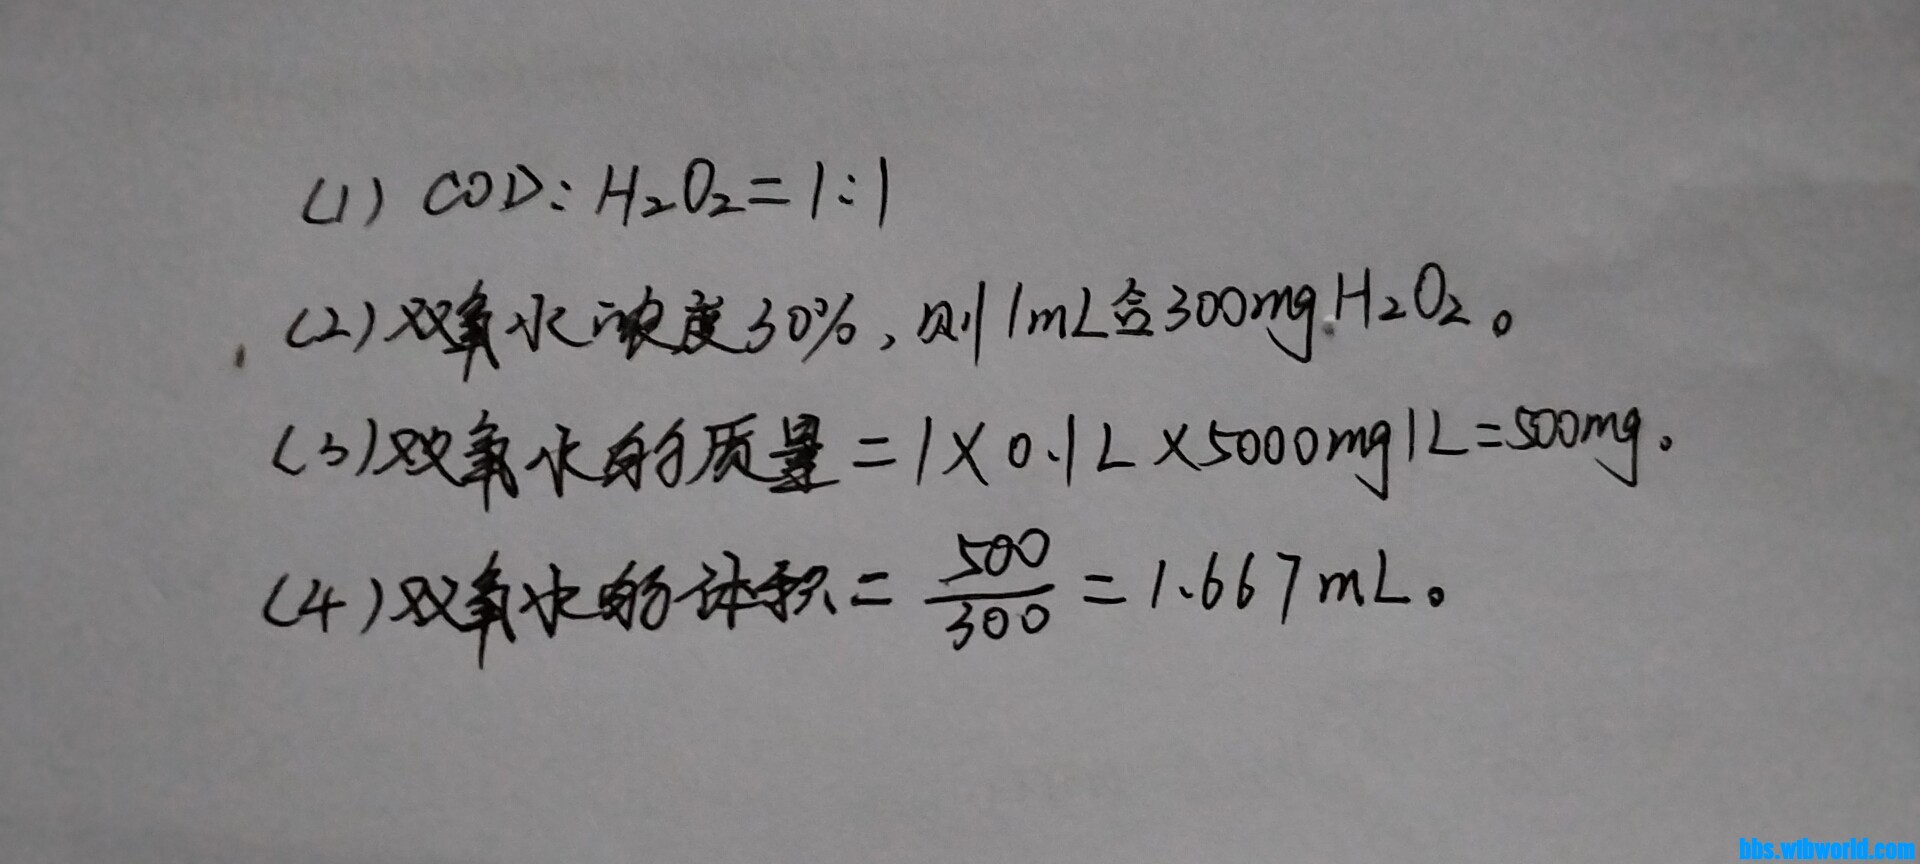 (1) COD:H₂O₂=1:1
(2)双氧水浓度30%,则1mL含300mg.H₂O₂。
(3)双氧水的质量=1×0.1L×5000mg/L=500mg.
(4)双氧水的体积=500/300=1.667mL。
bbs.wibworld.com